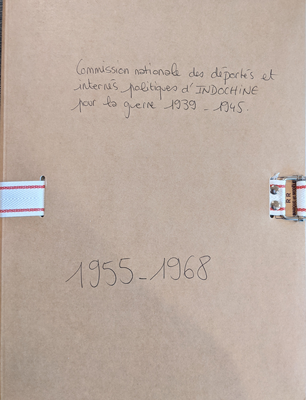 Commission nationale des déportés et
internés politiques d'INDOCHINE
pour la guerre 1939-1945.
1955-1968